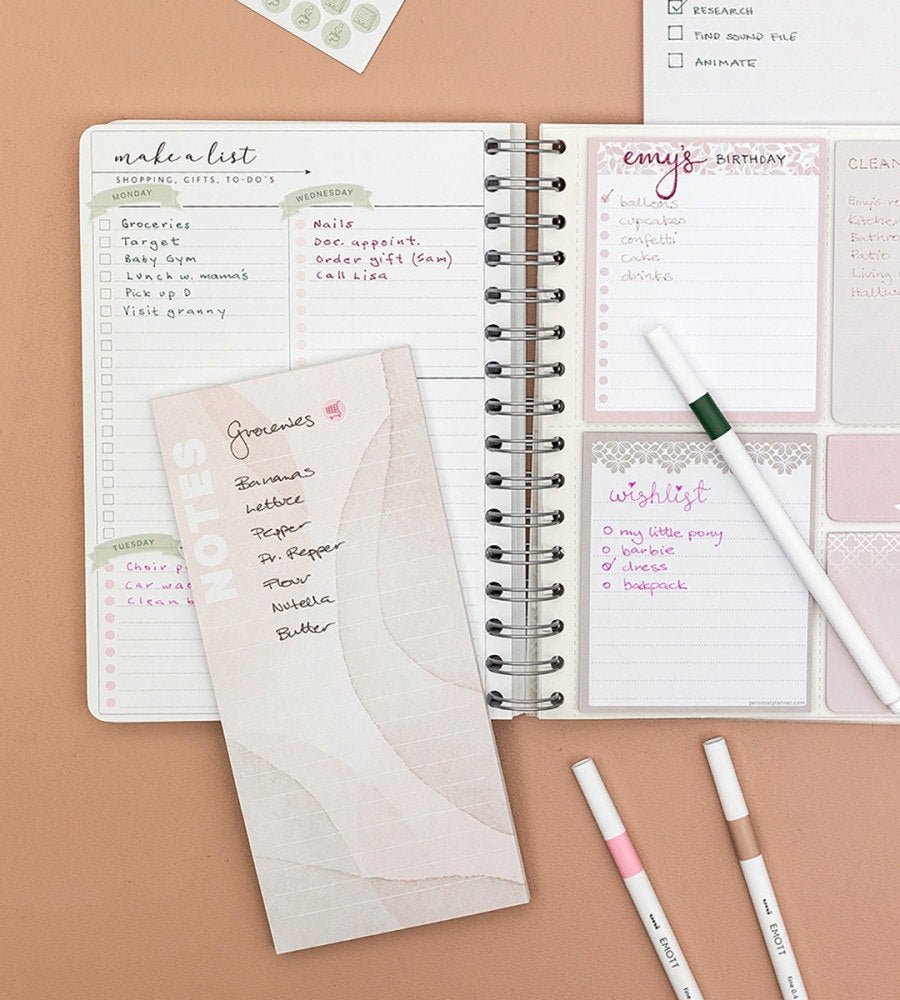 RESEARCH
FIND SOUND FILE
ANIMATE
make a list
SHOPPING, GIFTS, TO-DO'S
MONDAY
Groceries
Target
Baby Gym
Lunch w. mama's
Pick up D
Visit granny
WEDNESDAY
Nails
Doc. appoint.
Order gift (Sam)
Call Lisa
TUESDAY
Choir
Car
Clean
NOTES
Groceries
Bananas
Lettuce
Pepper
Dr. Pepper
Flour
Nutella
Butter
emy's BIRTHDAY
ballons
cupcakes
confetti
cake
drinks
wishlist
my little pony
barbie
dress
backpack
personalplanner.com
CLEAN
Emy's
Kitchen
Patio
Living
uni EMOTT
uni EMOTT
fine